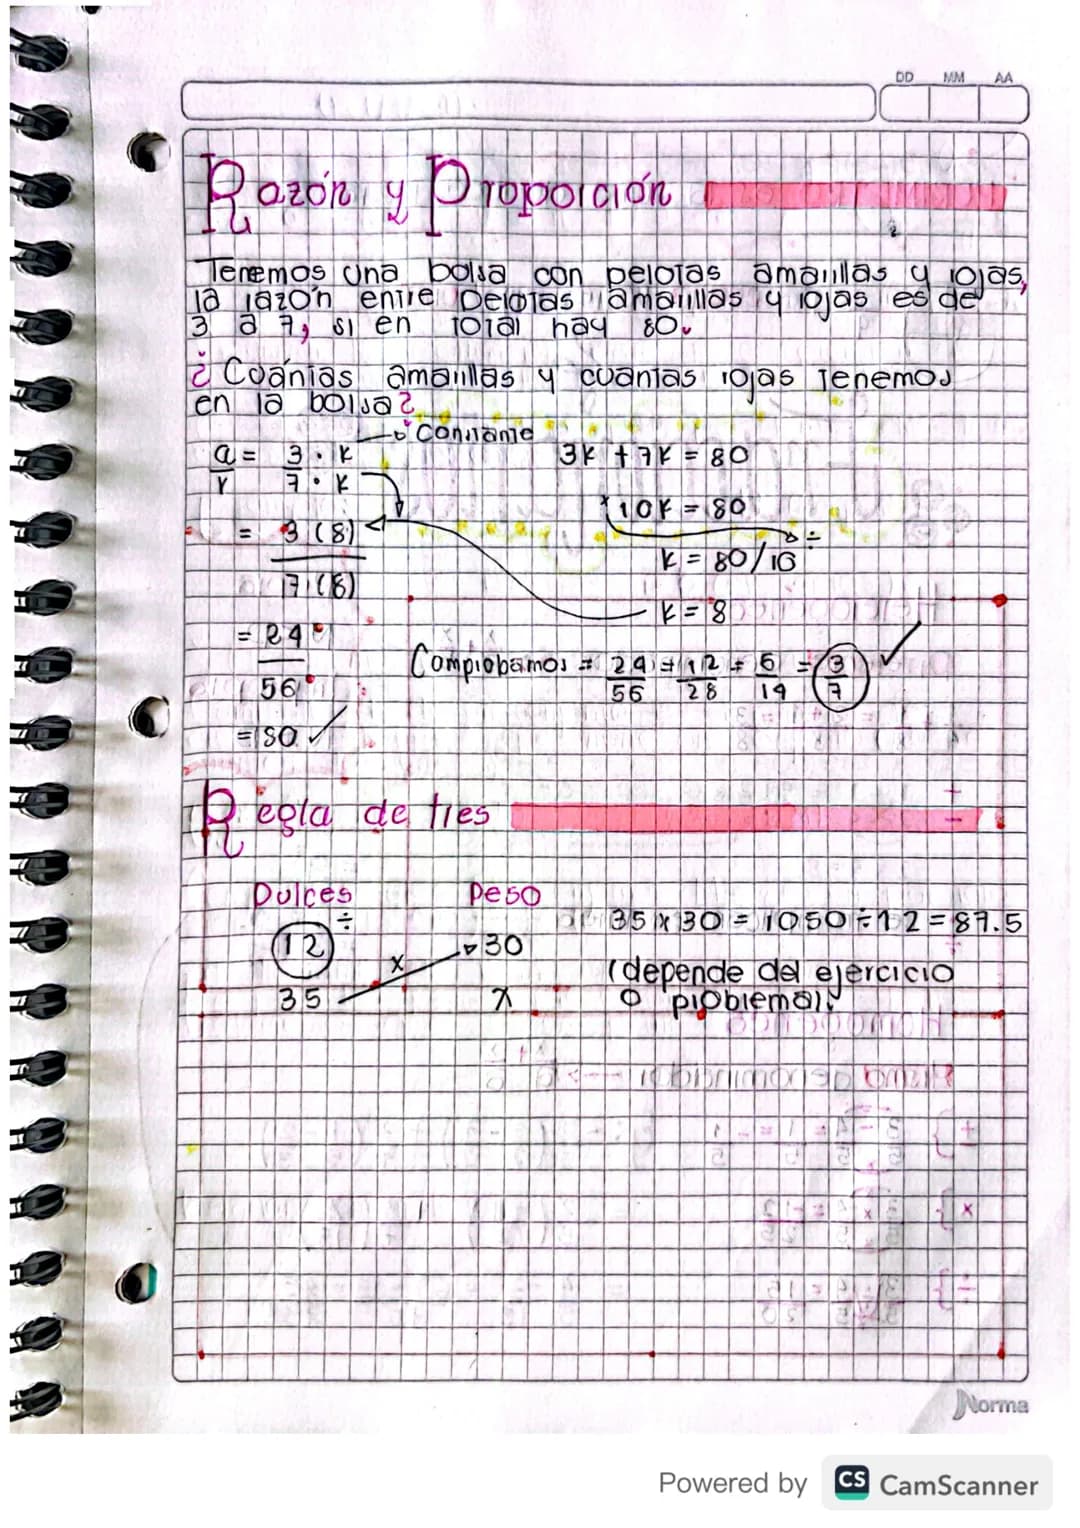 DD MM AA
Razón y Proporción
Tenemos una bolsa con pelotas amarillas y rojas,
la razón entre pelotas amarillas y rojas es de
3 a 7, si en total hay 80.
¿Cuántas amarillas y cuantas rojas tenemos
en la bolsa?
→ Constante
a/r = 3 · k / 7 · k
3k + 7k = 80
10k = 80
= 3 (8) / 7 (8)
÷
k = 80/10
k = 8
= 24 / 56
Comprobamos = 24/56 = 12/28 = 6/14 = 3/7 ✓
= 80 ✓
Regla de tres
Dulces Peso
÷
12 30
35 x 30 = 1050 ÷ 12 = 87.5
x
35 x
(depende del ejercicio
o problema).
Norma
Powered by CS CamScanner